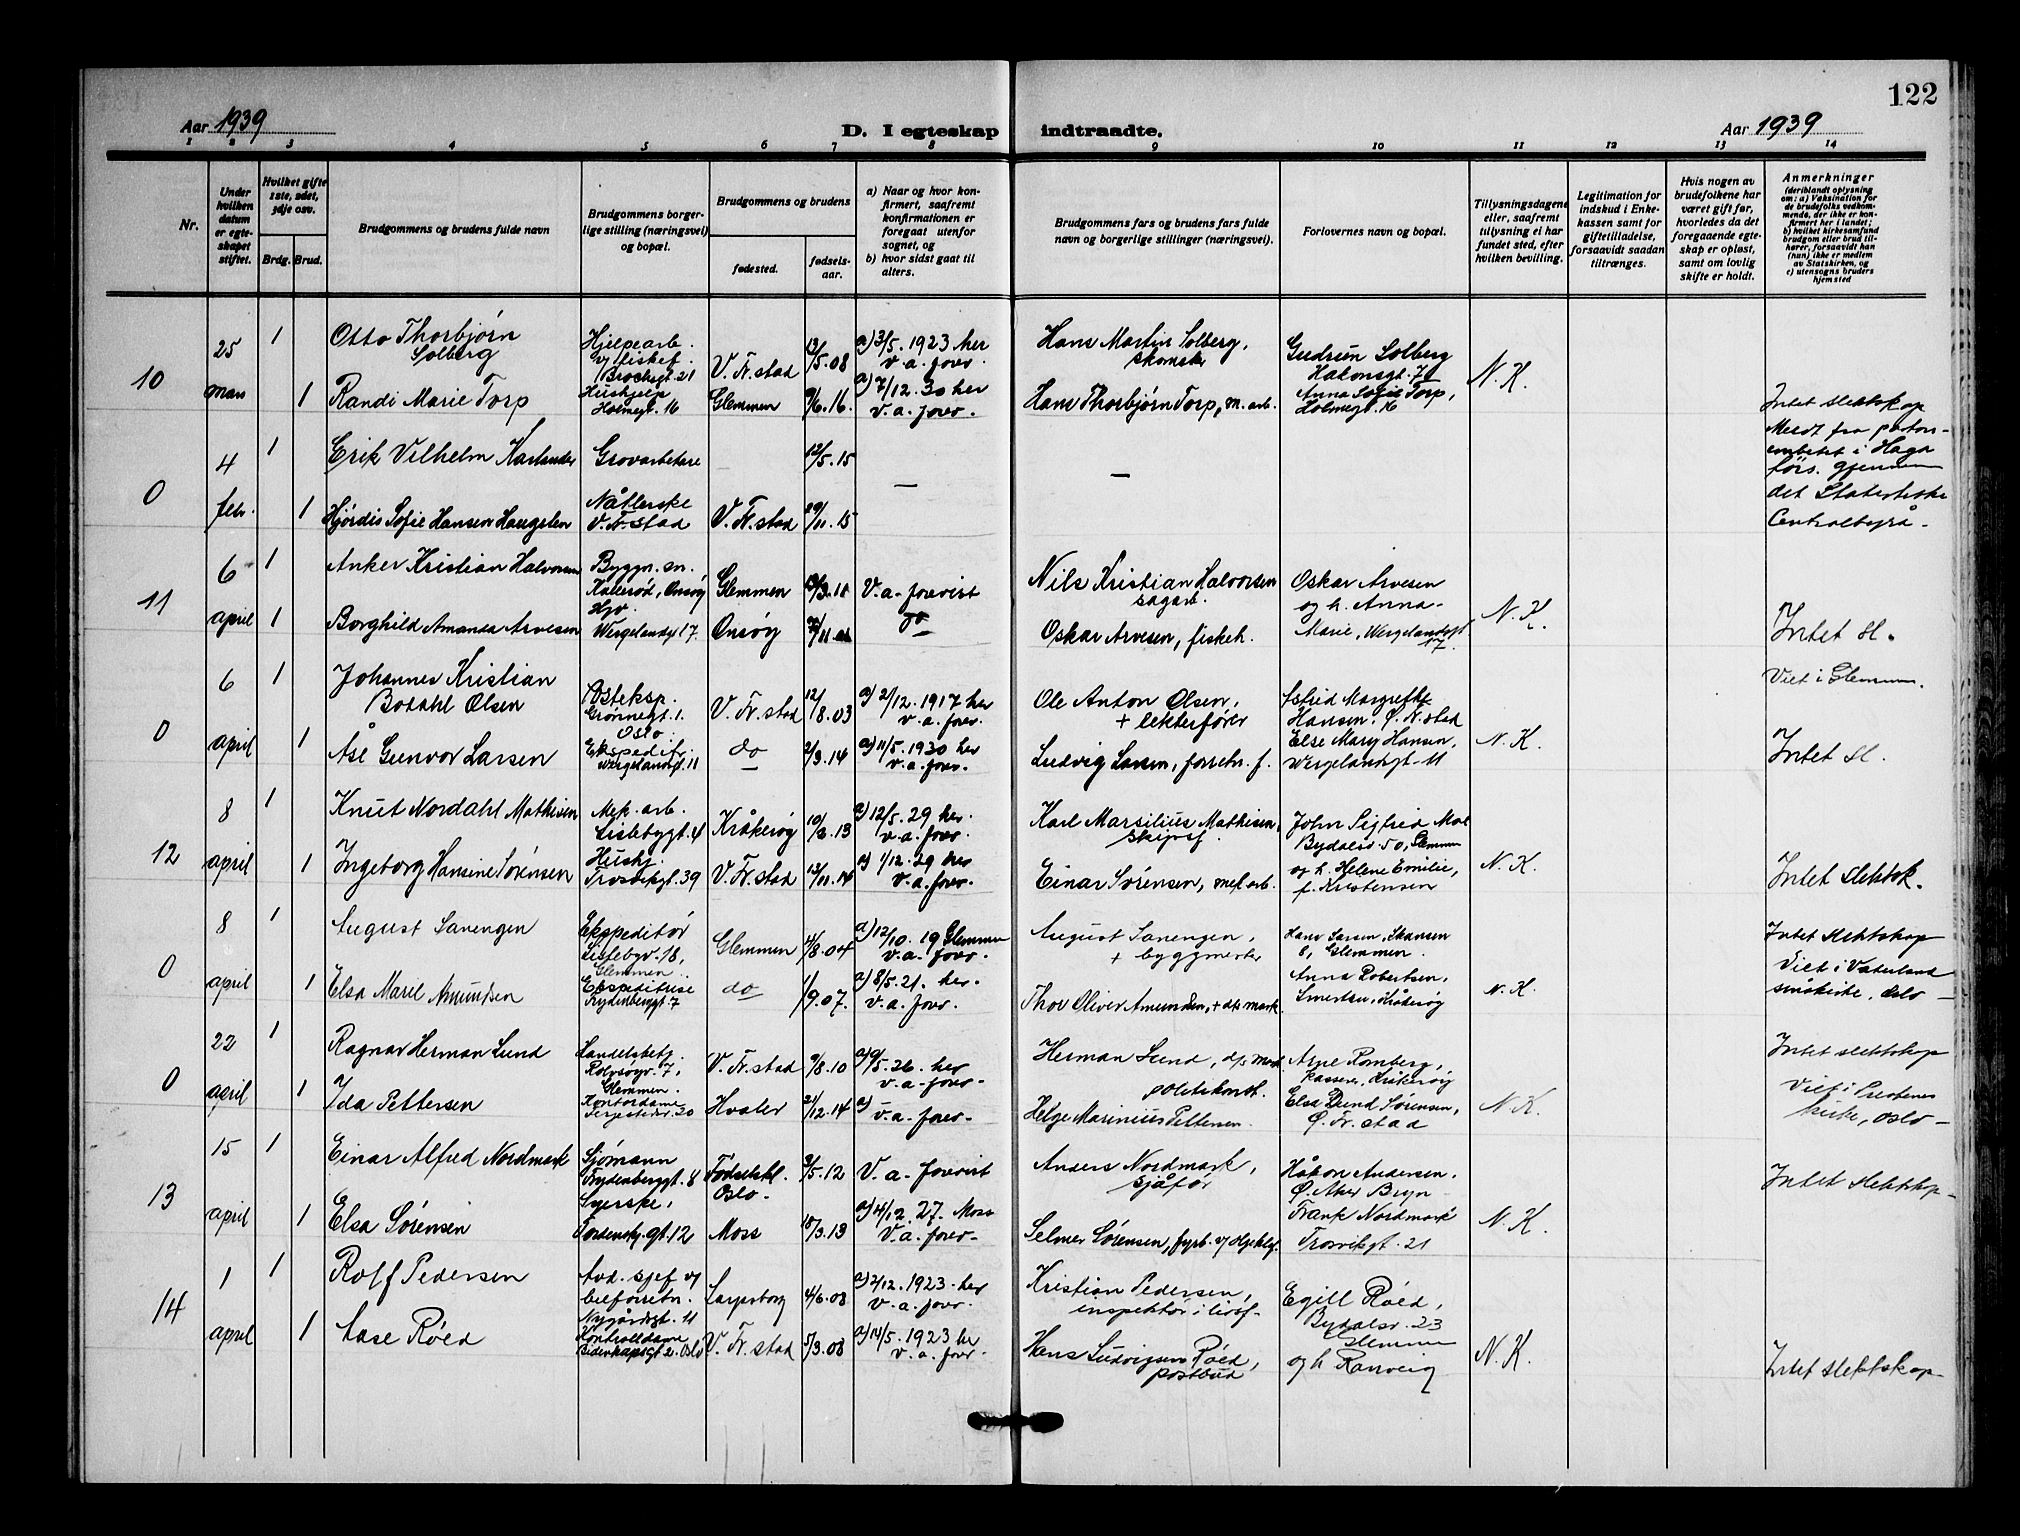 122
Aar 1939
D. I egteskap indtraadte.
Aar 1939
1 2 3 4 5 6 7 8 9 10 11 12 13 14
Nr.
Under
hvilken
datum
er egte-
skapet
stiftet.
Hvilket gifte
1ste, 2det,
3dje osv.
Brdg.
Brud.
Brudgommens og brudens fulde navn
Brudgommens borger-
lige stilling (næringsvei)
og bopæl.
Brudgommens og brudens
fødested.
fødsels-
aar.
a) Naar og hvor kon-
firmert, saafremt
konfirmationen er
foregaat utenfor
sognet, og
b) hvor sidst gaat til
alters.
Brudgommens fars og brudens fars fulde
navn og borgerlige stillinger (næringsvei).
Forlovernes navn og bopæl.
Tillysningsdagene
eller, saafremt
tillysning ei har
fundet sted, efter
hvilken bevilling.
Legitimation for
indskud i Enke-
kassen samt for
giftetilladelse,
forsaavidt saadan
tiltrænges.
Hvis nogen av
brudefolkene har
været gift før,
hvorledes da det
foregaaende egte-
skap er opløst,
samt om lovlig
skifte er holdt.
Anmerkninger
(deriblandt oplysning
om: a) Vaksination for
de brudefolks vedkom-
mende, der ikke er kon-
firmert her i landet;
b) hvilket kirkesamfund
brudgom eller brud til-
hører, forsaavidt han
(hun) ikke er medlem
av Statskirken, og
c) utensogns bruders
hjemsted
10
25
mars
1
Otto Thorbjørn
Solberg
Hjelpearb.
v/ fiskef.
Brochsgt. 21
V. Fr.stad
13/5.08
a) 3/5. 1923 her
v. a. forr.
Hans Martin Solberg,
skomaker
Gudrun Solberg
Hakonsgt. 7
N. K.
1
Randi Marie Torp
Hushjelp
Holmegt. 16
Glemmen
9/6.16.
a) 7/12. 30 her
v. a. forr.
Hans Thorbjørn Torp, m. arb.
Anna Sofie Torp,
Holmegt. 16
Intet slektskap
0
4
febr.
1
Erik Vilhelm Karlander
Grovarbetare
12/5.15
—
—
Meldt fra pastors-
embetet i Haga
förs. gjennem
det Statistiske
Centralbyrå.
1
Hjørdis Sofie Hansen Haugsten
Nåtlerske
V. Fr. stad
V. Fr. stad
29/11.15
11
6
april
1
Anker Kristian Halvorsen
Byggn. sn.
Kallerød, Onsøy
Glemmen
V. a. forvist
Nils Kristian Halvorsen
sagarb.
Oskar Arvesen
og h. Anna
Marie, Wergelandsgt
17
N. K.
Intet sl.
1
Borghild Amanda Arvesen
Hjv.
Wergelandsgt 17.
Onsøy
do
Oskar Arvesen, fiskeh.
0
6
april
1
Johannes Kristian
Bodahl Olsen
Posteksp.
Grønnegt 1.
Oslo
V. Fr. stad
12/8.03
a) 2/12. 1917 her
v. a. forr.
Ole Anton Olsen,
+ lekterfører
Astrid Margrethe
Hansen, Ø. Fr.stad
N. K.
Viet i Glemmen.
1
Åse Gunvor Larsen
Ekspeditr.
Wergelandsgt. 11
do
2/3.14
a) 11/5. 1930 her
v. a. forr.
Ludvig Larsen, forretn. f.
Else Mary Hansen,
Wergelandsgt. 11
Intet sl.
12
8
april
1
Knut Nordahl Mathisen
Mek. arb.
Lislebygt. 4
Kråkerøy
a) 12/5. 29 her.
v. a. forr.
Karl Marsilius Mathisen,
skipsf
John Sigfred Moe
Bydalsv. 50, Glemmen
N. K.
1
Ingeborg Hansine Sørensen
Hushj.
Trosvikgt. 39
V. Fr.stad
13/11.14
a) 1/12. 29 her
v. a. forr.
Einar Sørensen, mek arb.
og h. Helene Emilie,
f. Kristensen
Intet slektsk.
0
8
april
1
August Sanengen
Ekspeditør
Lislebyv. 18,
Glemmen
Glemmen
4/8.04
a) 12/10. 19 Glemmen
v. a. forr.
August Sanengen,
+ byggmester
Hans Larsen, Skansen
8, Glemmen.
N. K.
Intet slektskap
Viet i Vaterland
småkirke, Oslo
1
Elsa Marie Amundsen
Ekspeditrise
Frydenberggt. 7
do
1/9.07.
a) 8/5. 21. her.
v. a. forr.
Thor Oliver Amundsen, + d/s mask.
Anna Robertsen,
Kråkerøy
0
22
april
1
Ragnar Herman Lund
Handelsbetj.
Rolvsøyv. 7,
Glemmen
V. Fr. stad
9/8.10
a) 9/5. 26. her
v. a. forr.
Herman Lund,
politikonst.
Arne Romberg,
kasserer, Kråkerøy
N. K.
Intet slektskap
Viet i Prestenes
kirke, Oslo
1
Ida Pettersen
Kontordame
20
Hvaler
21/12.14
a)
v. a. forr.
Helge Marinius Pettersen
Elsa Lund Sørensen,
Ø. Fr. stad
13
15
april
1
Einar Alfred Nordmark
Sjømann
Frydenberggt. 8
Fødselskl.
Oslo.
3/5.12
V. a. forvist
Anders Nordmark,
sjåfør
Håkon Andersen,
Ø. Aker Bryn
N. K.
Intet slektskap
1
Elsa Sørensen
Syerske,
Tordenskj. gt. 12
Moss
18/3.13
a) 4/12. 27. Moss
V. a. forr.
Selmer Sørensen, fyrb.
Frank Nordmark
Trosvikgt. 21
14
1
april
1
Rolf Pedersen
Avd. sjef v/
bilforretn.
Nygårdsgt. 11
Sarpsborg
4/6.08
a) 2/12. 1923. her
v. a. forr.
Kristian Pedersen,
inspektør i livsf.
Egill Røed,
Bydalsv. 23
Glemmen
N. K.
1
Aase Røed
Kontrolldame
Bidenkapsgt 2. Oslo
V. Fr. stad
5/3.08
a) 14/5. 1923 her
v. a. forr.
Hans Ludvigsen Røed,
postbud
og h. Ranveig
Intet slektskap